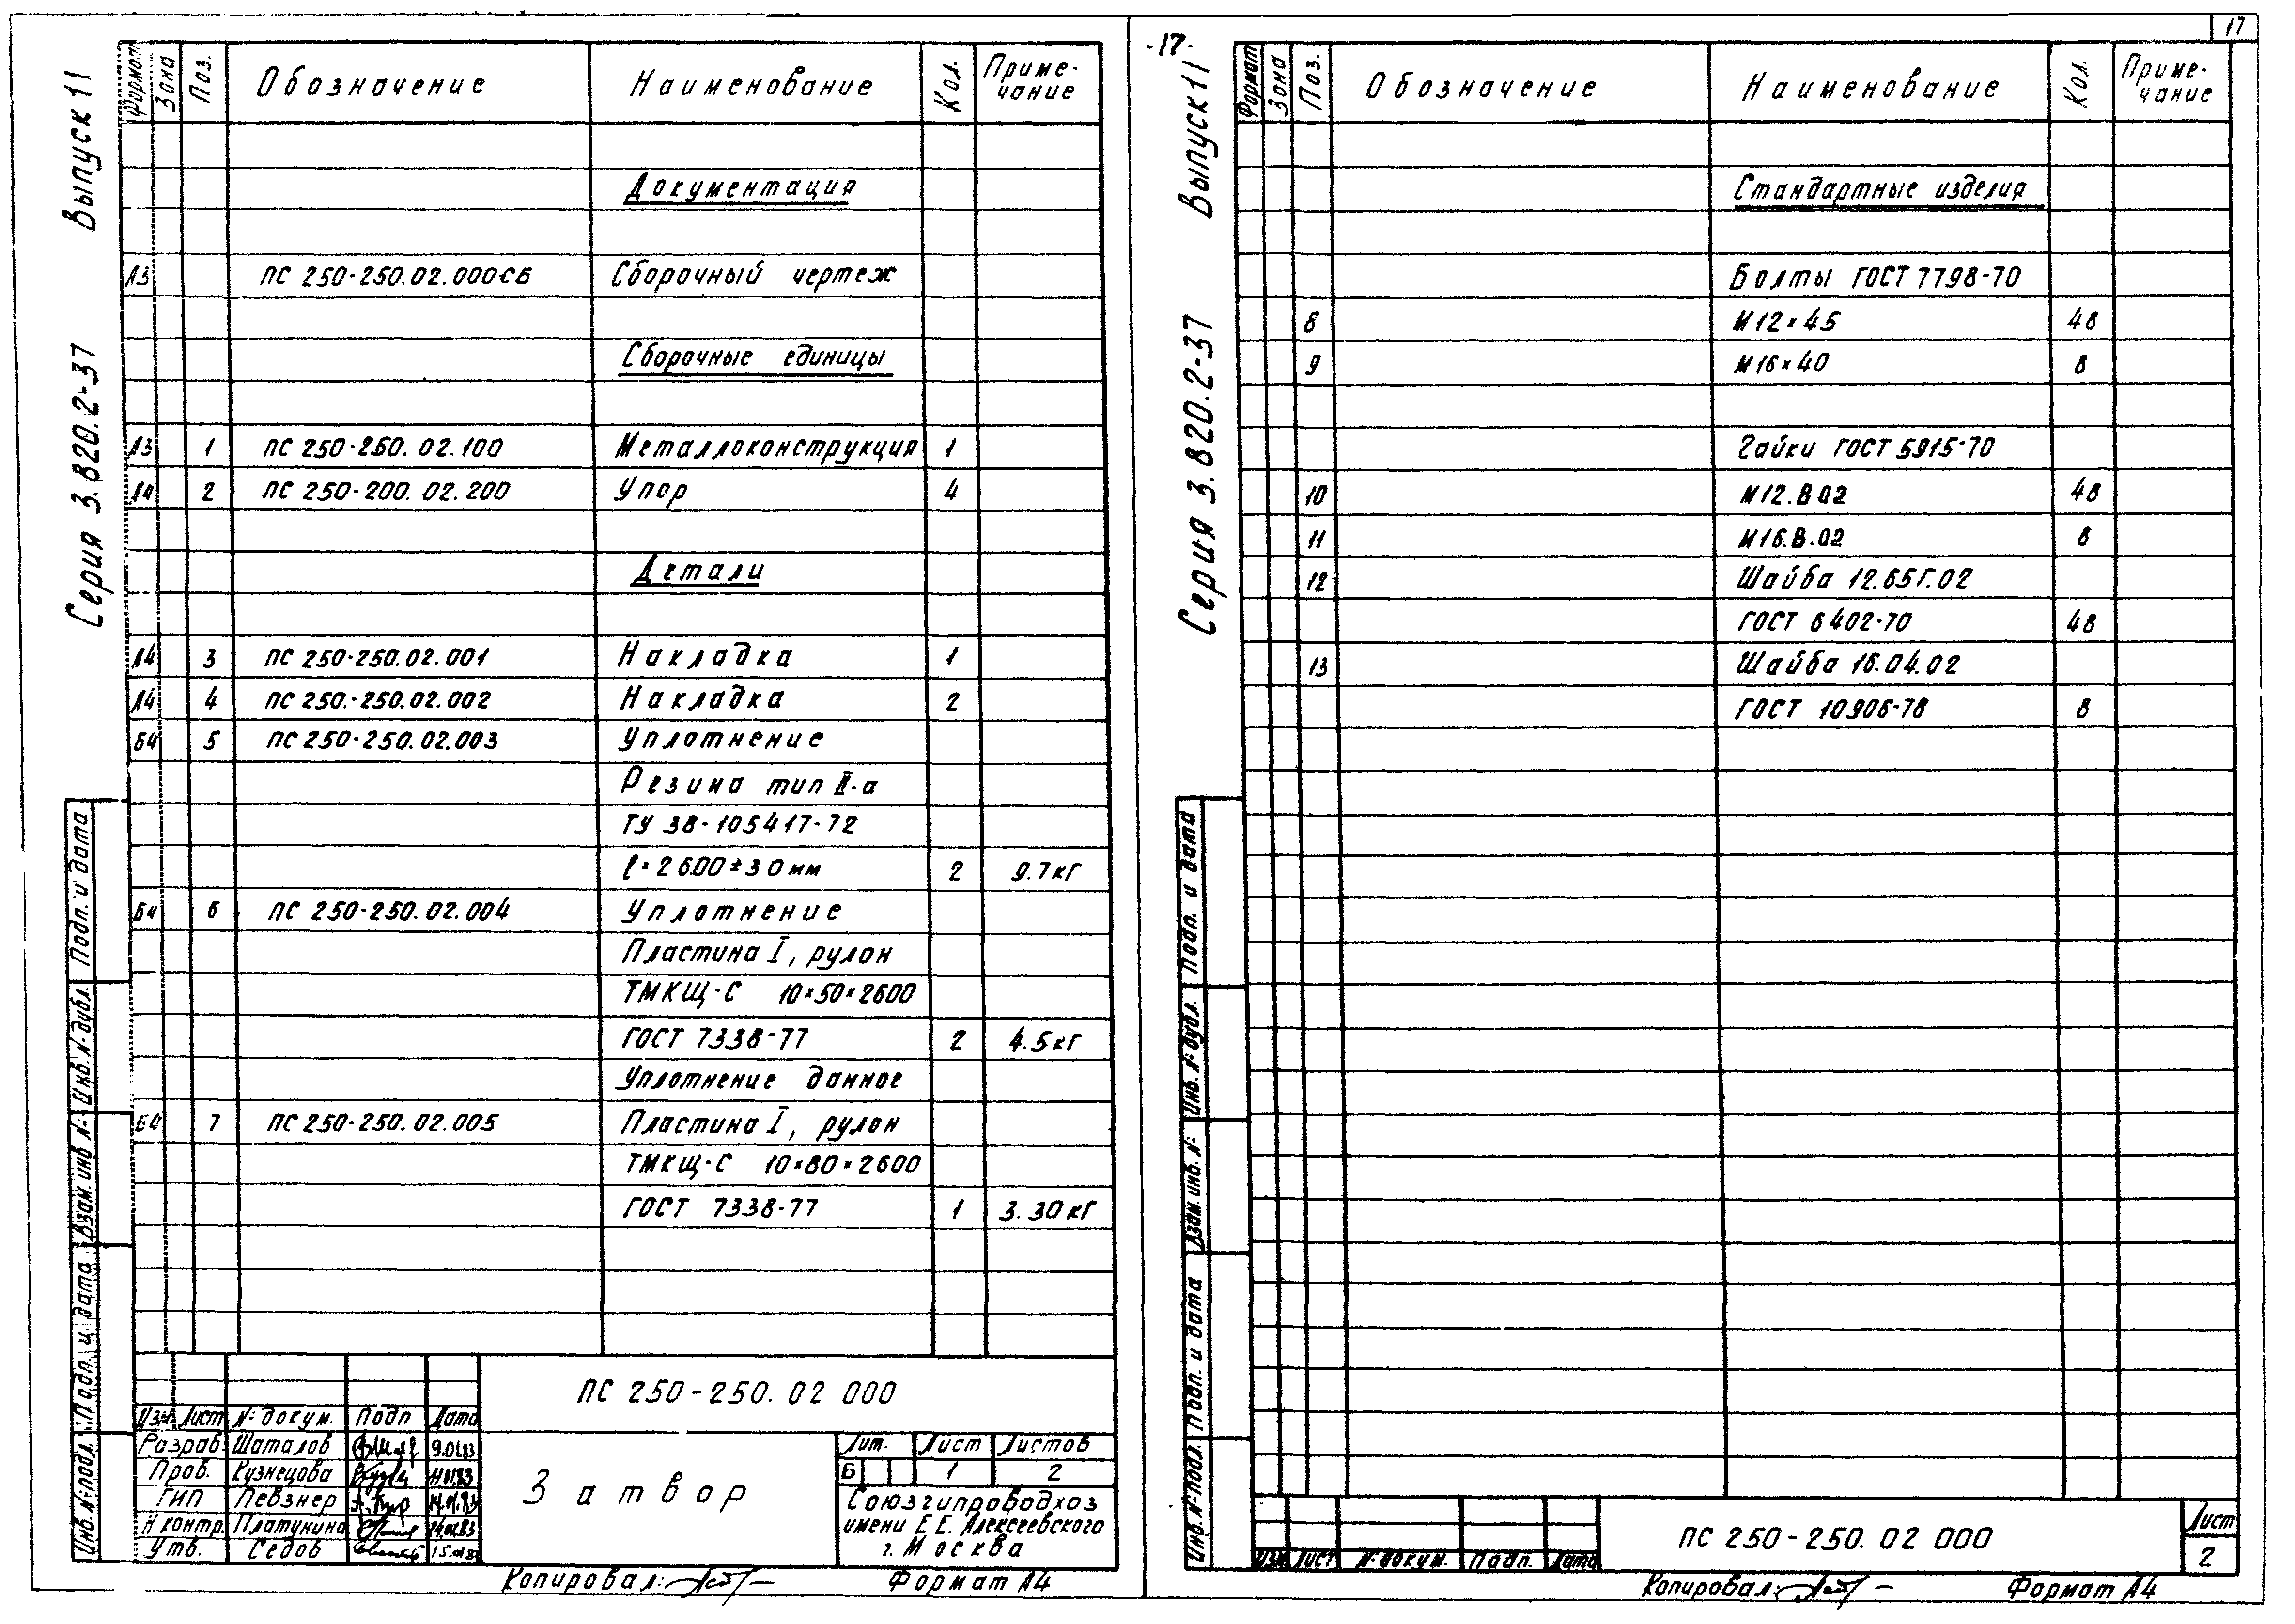 17
-17-
Выпуск 11
Серия 3.820.2-37
Формат Зона Поз. Обозначение Наименование Кол. Приме-
чание
Документация
А3 ПС 250-250.02.000СБ Сборочный чертеж
Сборочные единицы
А3 1 ПС 250-250.02.100 Металлоконструкция 1
А4 2 ПС 250-200.02.200 Упор 4
Детали
А4 3 ПС 250-250.02.001 Накладка 1
А4 4 ПС 250.-250.02.002 Накладка 2
Б4 5 ПС 250-250.02.003 Уплотнение
Резина тип II-а
ТУ 38-105417-72
ℓ=2600±30мм 2 9.7кг
Б4 6 ПС 250-250.02.004 Уплотнение
Пластина I, рулон
ТМКЩ-С 10×50×2600
ГОСТ 7338-77 2 4.5кг
Уплотнение данное
Б4 7 ПС 250-250.02.005 Пластина I, рулон
ТМКЩ-С 10×80×2600
ГОСТ 7338-77 1 3.30кг
Подп. и дата
Инв.№дубл.
Взам.инв №
Подп. и дата
Инв.№подл.
ПС 250-250.02 000
Изм Лист №докум. Подп Дата
Разраб. Шаталов 9.01.83
Пров. Кузнецова 11.01.83
ГИП Певзнер 14.01.83
Н контр. Платунина 24.02.83
Утв. Седов
Затвор
Лит. Лист Листов
Б 1 2
Союзгипроводхоз
имени Е.Е. Алексеевского
г. Москва
Копировал:
Формат А4
Выпуск 11
Серия 3.820.2-37
Формат Зона Поз. Обозначение Наименование Кол. Приме-
чание
Стандартные изделия
Болты ГОСТ 7798-70
8 М12×45 48
9 М16×40 8
Гайки ГОСТ 5915-70
10 М12.В 02 48
11 М16.В.02 8
12 Шайба 12.65Г.02
ГОСТ 6402-70 48
13 Шайба 16.04.02
ГОСТ 10906-78 8
Подп. и дата
Инв.№дубл.
Взам.инв.№
Подп. и дата
Инв.№подл.
Изм Лист №докум. Подп. Дата
ПС 250-250.02 000
Лист
2
Копировал:
Формат А4